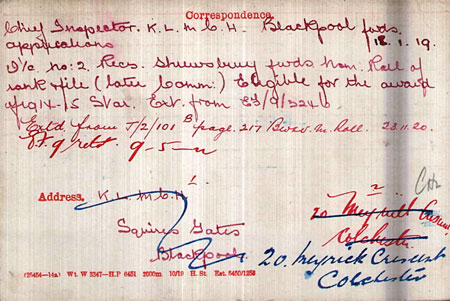 Correspondence.
Chief Inspector. K. L. M. C. H. Blackpool fwds.
applications 18.1.19.
I/c No: 2. Recs. Shrewsbury fwds Nom. Roll of
rank & file (later Comm.) Eligible for the award
of 1914-15 Star. Ext. from
Extd. from J/2/101 B page. 217 B.W.& V. M. Roll. 23.11.20.
9-5-
Address. K. L. M. C. H.
1.
Squires Gates
Blackpool
2
20 Meyrill Crescent
Colchester.
20. Meyrick Crescent
Colchester
(25454-14a) Wt. W 3347-H.P 6451 2000m. 10/19 H. St. Est. 5400/1253